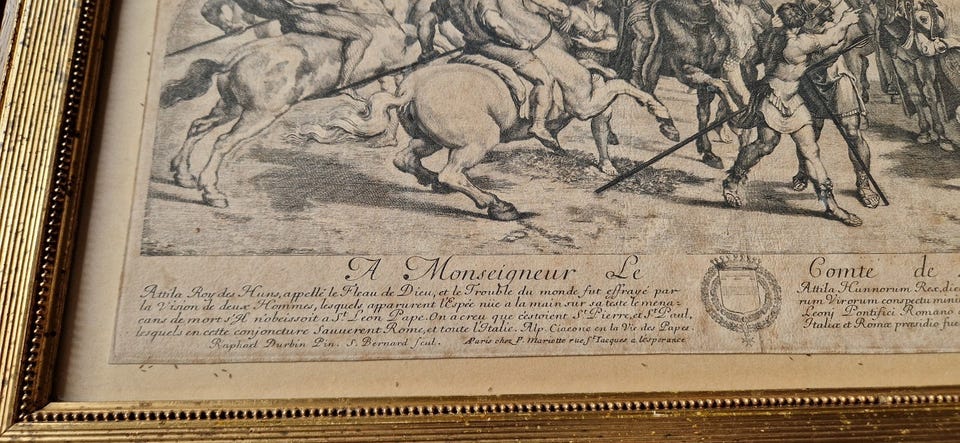 A Monseigneur Le Comte de
Attila Roy des Huns, appellé le Fleau de Dieu, et le Trouble du monde fut effrayé par
la Vision de deux Hommes, lesquels apparurent l'Espée nüe a la main sur sa teste le mena-
cans de mort s'Il n'obeissoit a St. Leon Pape. On a creu que c'estoient St. Pierre, et St. Paul,
lesquels en cette conjoncture Sauverent Rome, et toute l'Italie. Alp. Ciacone en la Vie des Papes.
Raphael Durbin Pin. S. Bernard scul. A Paris chez P. Mariette rue St. Jacques a lesperance
Attila Hunnorum Rex,
rum Virorum conspectu
Leonj Pontifici Romano
Italiæ et Romæ præsidio